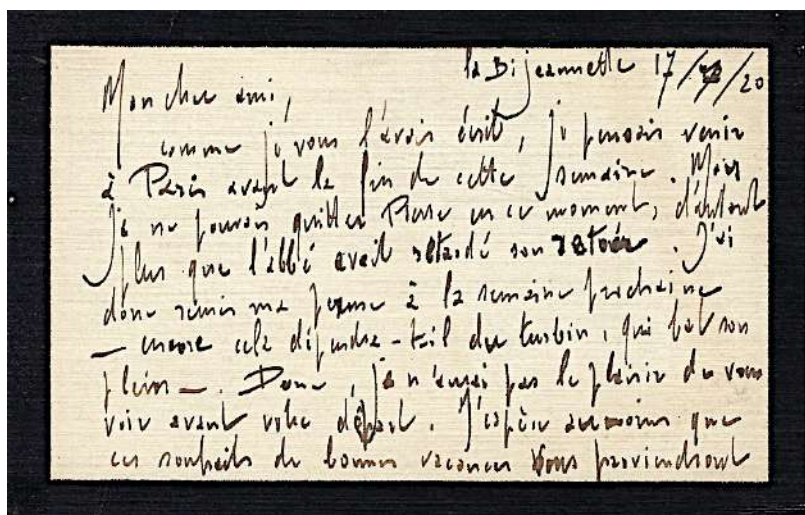 la Bijeannette 17/7/20
Mon cher ami,
comme je vous l'avais écrit, je pensais venir
à Paris avant la fin de cette semaine. Mais
je ne pouvais quitter Pierre en ce moment, d'autant
plus que l'abbé avait retardé son retour. J'ai
donc remis ma à la semaine prochaine
— encore cela dépendra-t-il du turbin, qui bat son
plein —. Donc, je n'aurai pas le plaisir de vous
voir avant votre départ. J'espère au moins que
ces souhaits de bonnes vacances vous parviendront